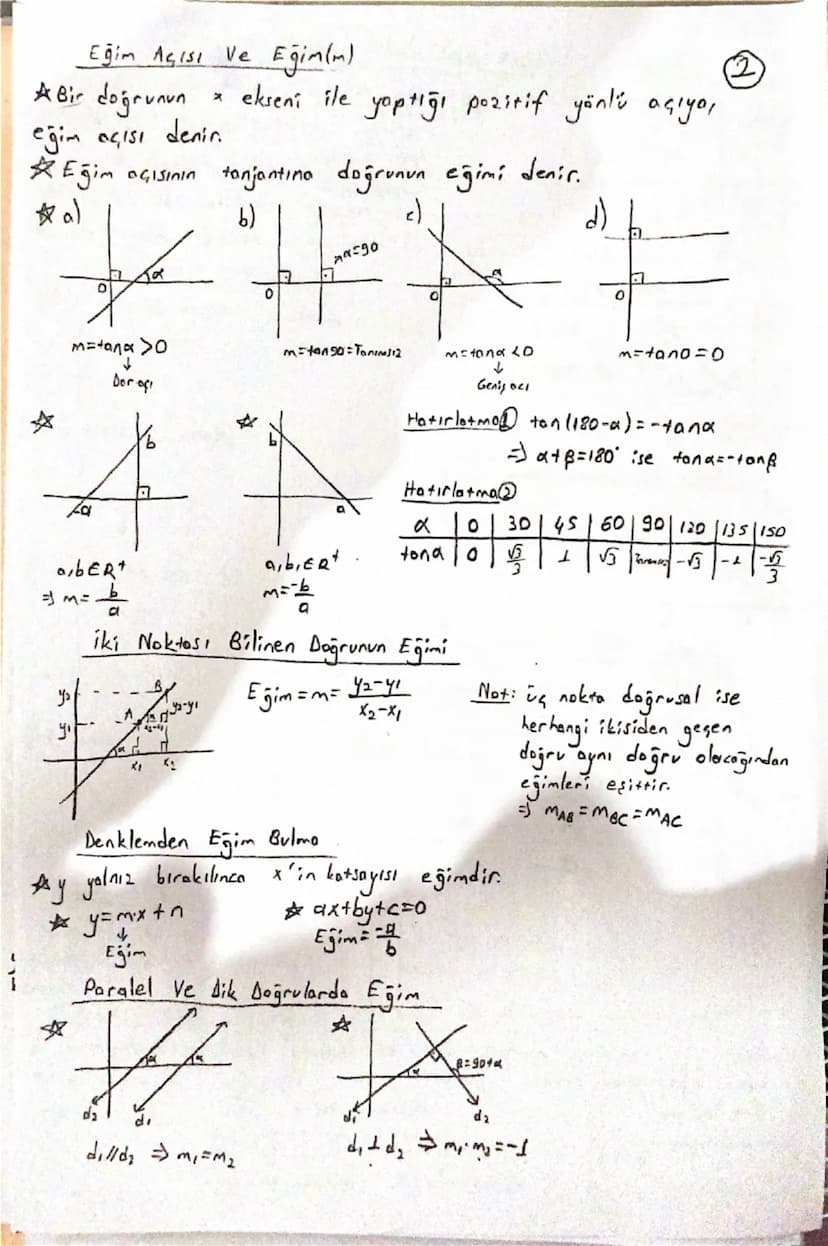 Eğim Açısı Ve Eğim(m)
2
☆ Bir doğrunun x ekseni ile yaptığı pozitif yönlü açıya,
eğim açısı denir.
☆ Eğim açısının tanjantına doğrunun eğimi denir.
☆ a) b) c) d)
α α=90 α
0 0 0 0
m=tanα>0 m=tan90=Tanımsız m=tanα<0 m=tan0=0
↓ ↓
Dar açı Geniş acı
☆ ☆
b b
-a a
a,b∈R⁺ a,b,∈R⁺
⇒ m=b/a m=-b/a
Hatırlatma① tan(180-α)=-tanα
⇒ α+β=180° ise tanα=-tanβ
Hatırlatma②
α | 0 | 30 | 45 | 60 | 90 | 120 | 135 | 150
tanα | 0 | √3/3 | 1 | √3 | Tanımsız | -√3 | -1 | -√3/3
İki Noktası Bilinen Doğrunun Eğimi
y₂ B
y₁ A y₂-y₁
α x₂-x₁
x₁ x₂
Eğim=m= y₂-y₁/x₂-x₁
Not: üç nokta doğrusal ise
herhangi ikisiden geçen
doğru aynı doğru olacağından
eğimleri eşittir.
⇒ mAB=mBC=mAC
Denklemden Eğim Bulma
☆ y yalnız bırakılınca x'in katsayısı eğimdir.
☆ y=m·x+n ☆ ax+by+c=0
↓
Eğim Eğim=-a/b
Paralel Ve Dik Doğrularda Eğim
☆ ☆
α α α β=90+α
d₂ d₁ d₁ d₂
d₁//d₂ ⇒ m₁=m₂ d₁⊥d₂ ⇒ m₁·m₂=-1